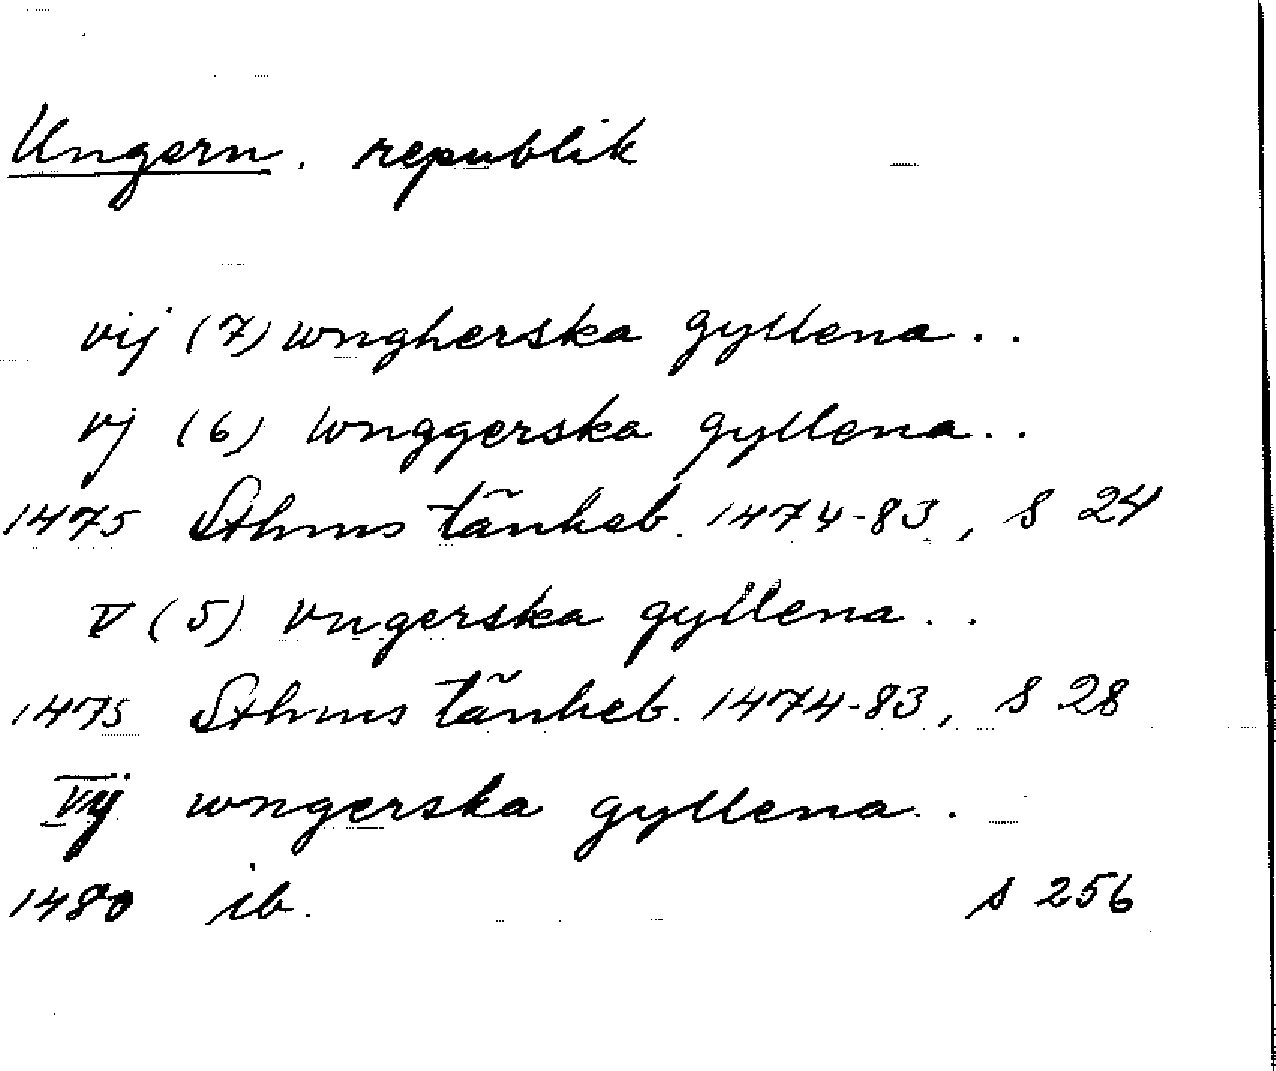 Ungern. republik
vij (7) wngherska gyllena..
vj (6) wnggerska gyllena..
1475 Sthms tänkeb. 1474-83, s 24
V (5) vngerska gyllena..
1475 Sthms tänkeb. 1474-83, s 28
Vij wngerska gyllena..
1480 ib. s 256